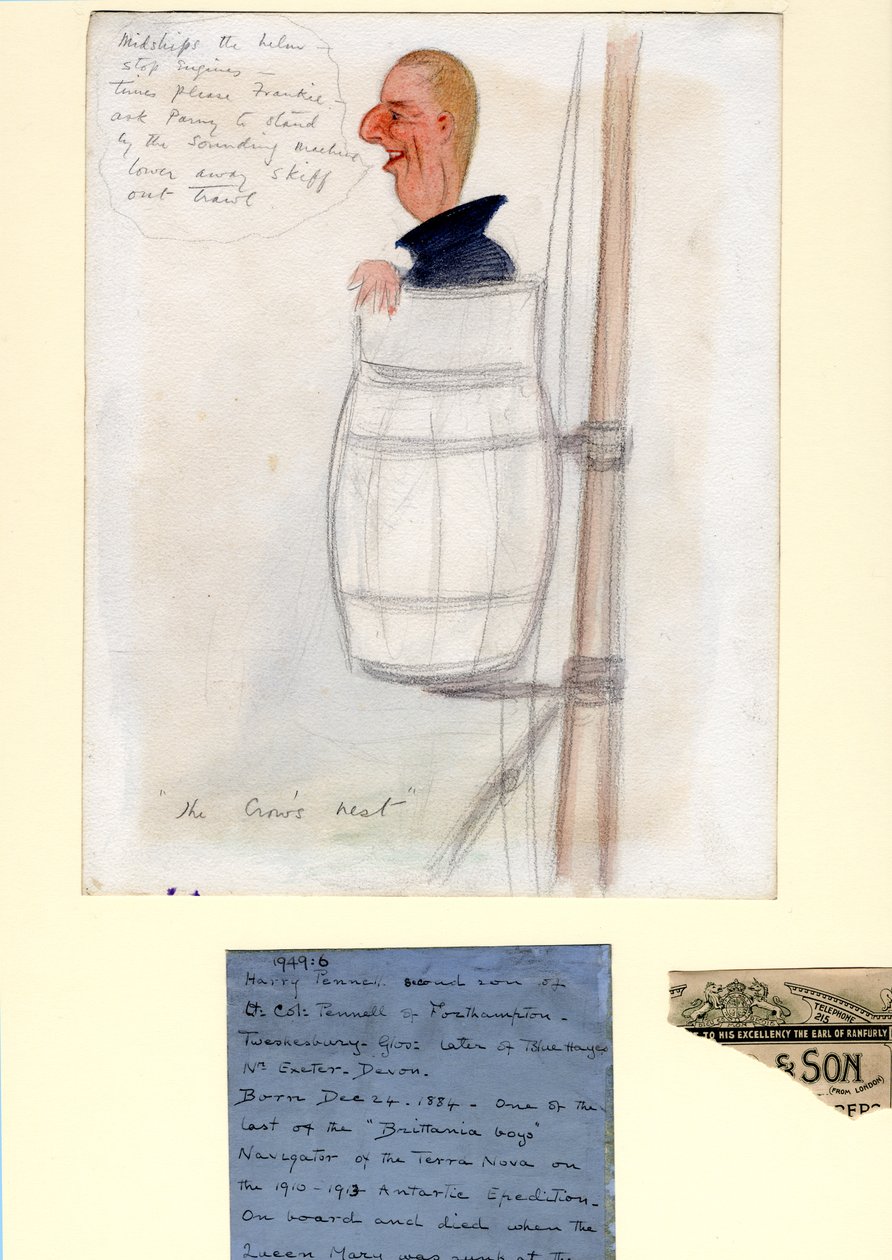 Midships the helm –
stop Engines –
times please Frankie –
ask Parny to stand
by the Sounding Machine
lower away skiff
out trawl.
"The Crow's nest"
1949:6
Harry Pennell. second son of
Lt: Col: Pennell of Forthampton –
Tweskesbury – Glos: later of Blue Hayes
Nr Exeter – Devon.
Born Dec 24 – 1884 – One of the
last of the "Brittania boys"
Navigator of the Terra Nova on
the 1910 – 1913 Antartic Epedition –
On board and died when the
Queen Mary was sunk at the
TELEPHONE
215
TO HIS EXCELLENCY THE EARL OF RANFURLY
& SON
(FROM LONDON)